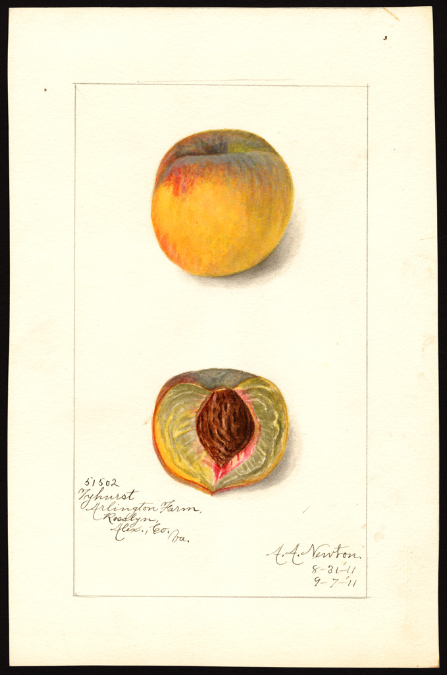 51502
Tyhurst
Arlington Farm,
Rosslyn,
Alex., Co.,
Va.
A. A. Newton.
8-31-11
9-7-11